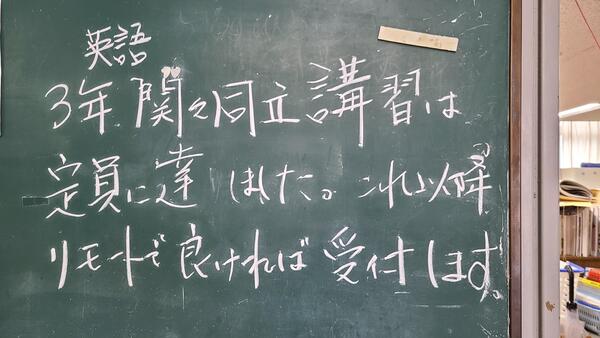 英語
3年 関々同立講習は
定員に達しました。これ以降
リモートで良ければ受付します。